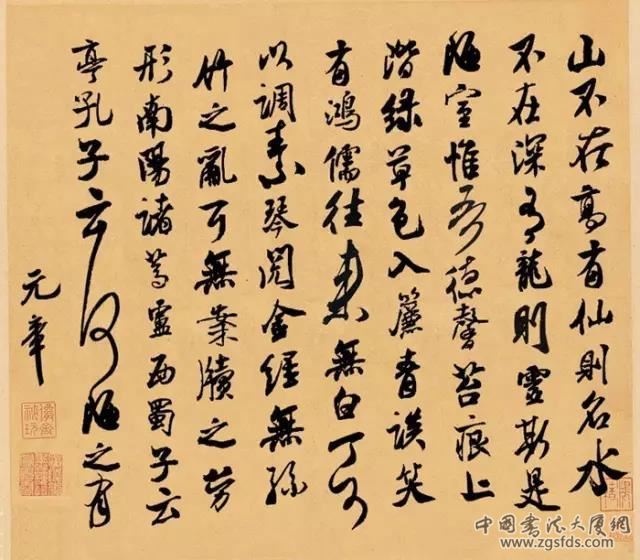 山不在高有仙則名水
不在深有龍則靈斯是
陋室惟吾德馨苔痕上
階綠草色入簾青談笑
有鴻儒往來無白丁可
以調素琴閱金經無絲
竹之亂耳無案牘之勞
形南陽諸葛廬西蜀子云
亭孔子云何陋之有
元章
中國書法大廈網
www.zgsfds.com